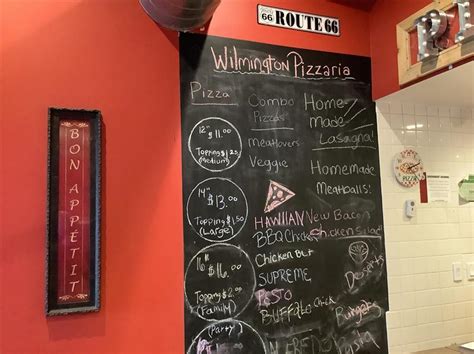 66
ROUTE 66
Wilmington Pizzaria
BON APPÉTIT
Pizza
12" $11.00
Topping $1.25
(Medium)
14"
$13.00
Topping $1.50
(Large)
16"
$16.00
Topping $2.00
(Family)
(Party)
Combo
Pizzas
Meatlovers
Veggie
HAWIIAN
BBQ Chicken
Chicken But
SUPREME
PESTO
BUFFALO Chick
Home-
made
Lasagna
Homemade
Meatballs!
New Bacon
Chicken Salad
Desserts
Pasta
PIZZA